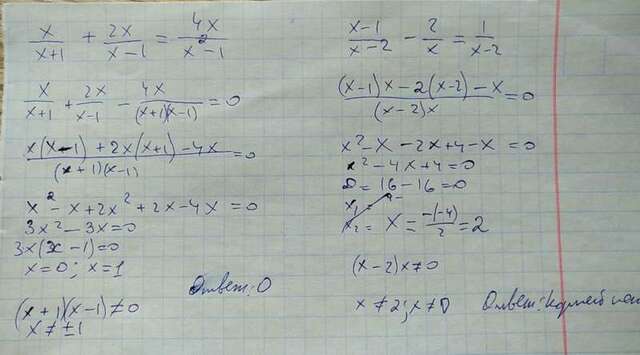 x/(x+1) + 2x/(x-1) = 4x/(x²-1)
x/(x+1) + 2x/(x-1) - 4x/((x+1)(x-1)) = 0
(x(x-1) + 2x(x+1) - 4x)/((x+1)(x-1)) = 0
x² - x + 2x² + 2x - 4x = 0
3x² - 3x = 0
3x(x-1) = 0
x=0; x=1
Ответ: 0
(x+1)(x-1) ≠ 0
x ≠ ±1
(x-1)/(x-2) - 2/x = 1/(x-2)
((x-1)x - 2(x-2) - x)/((x-2)x) = 0
x² - x - 2x + 4 - x = 0
x² - 4x + 4 = 0
D = 16 - 16 = 0
x = -(-4)/2 = 2
(x-2)x ≠ 0
x ≠ 2; x ≠ 0
Ответ: корней нет